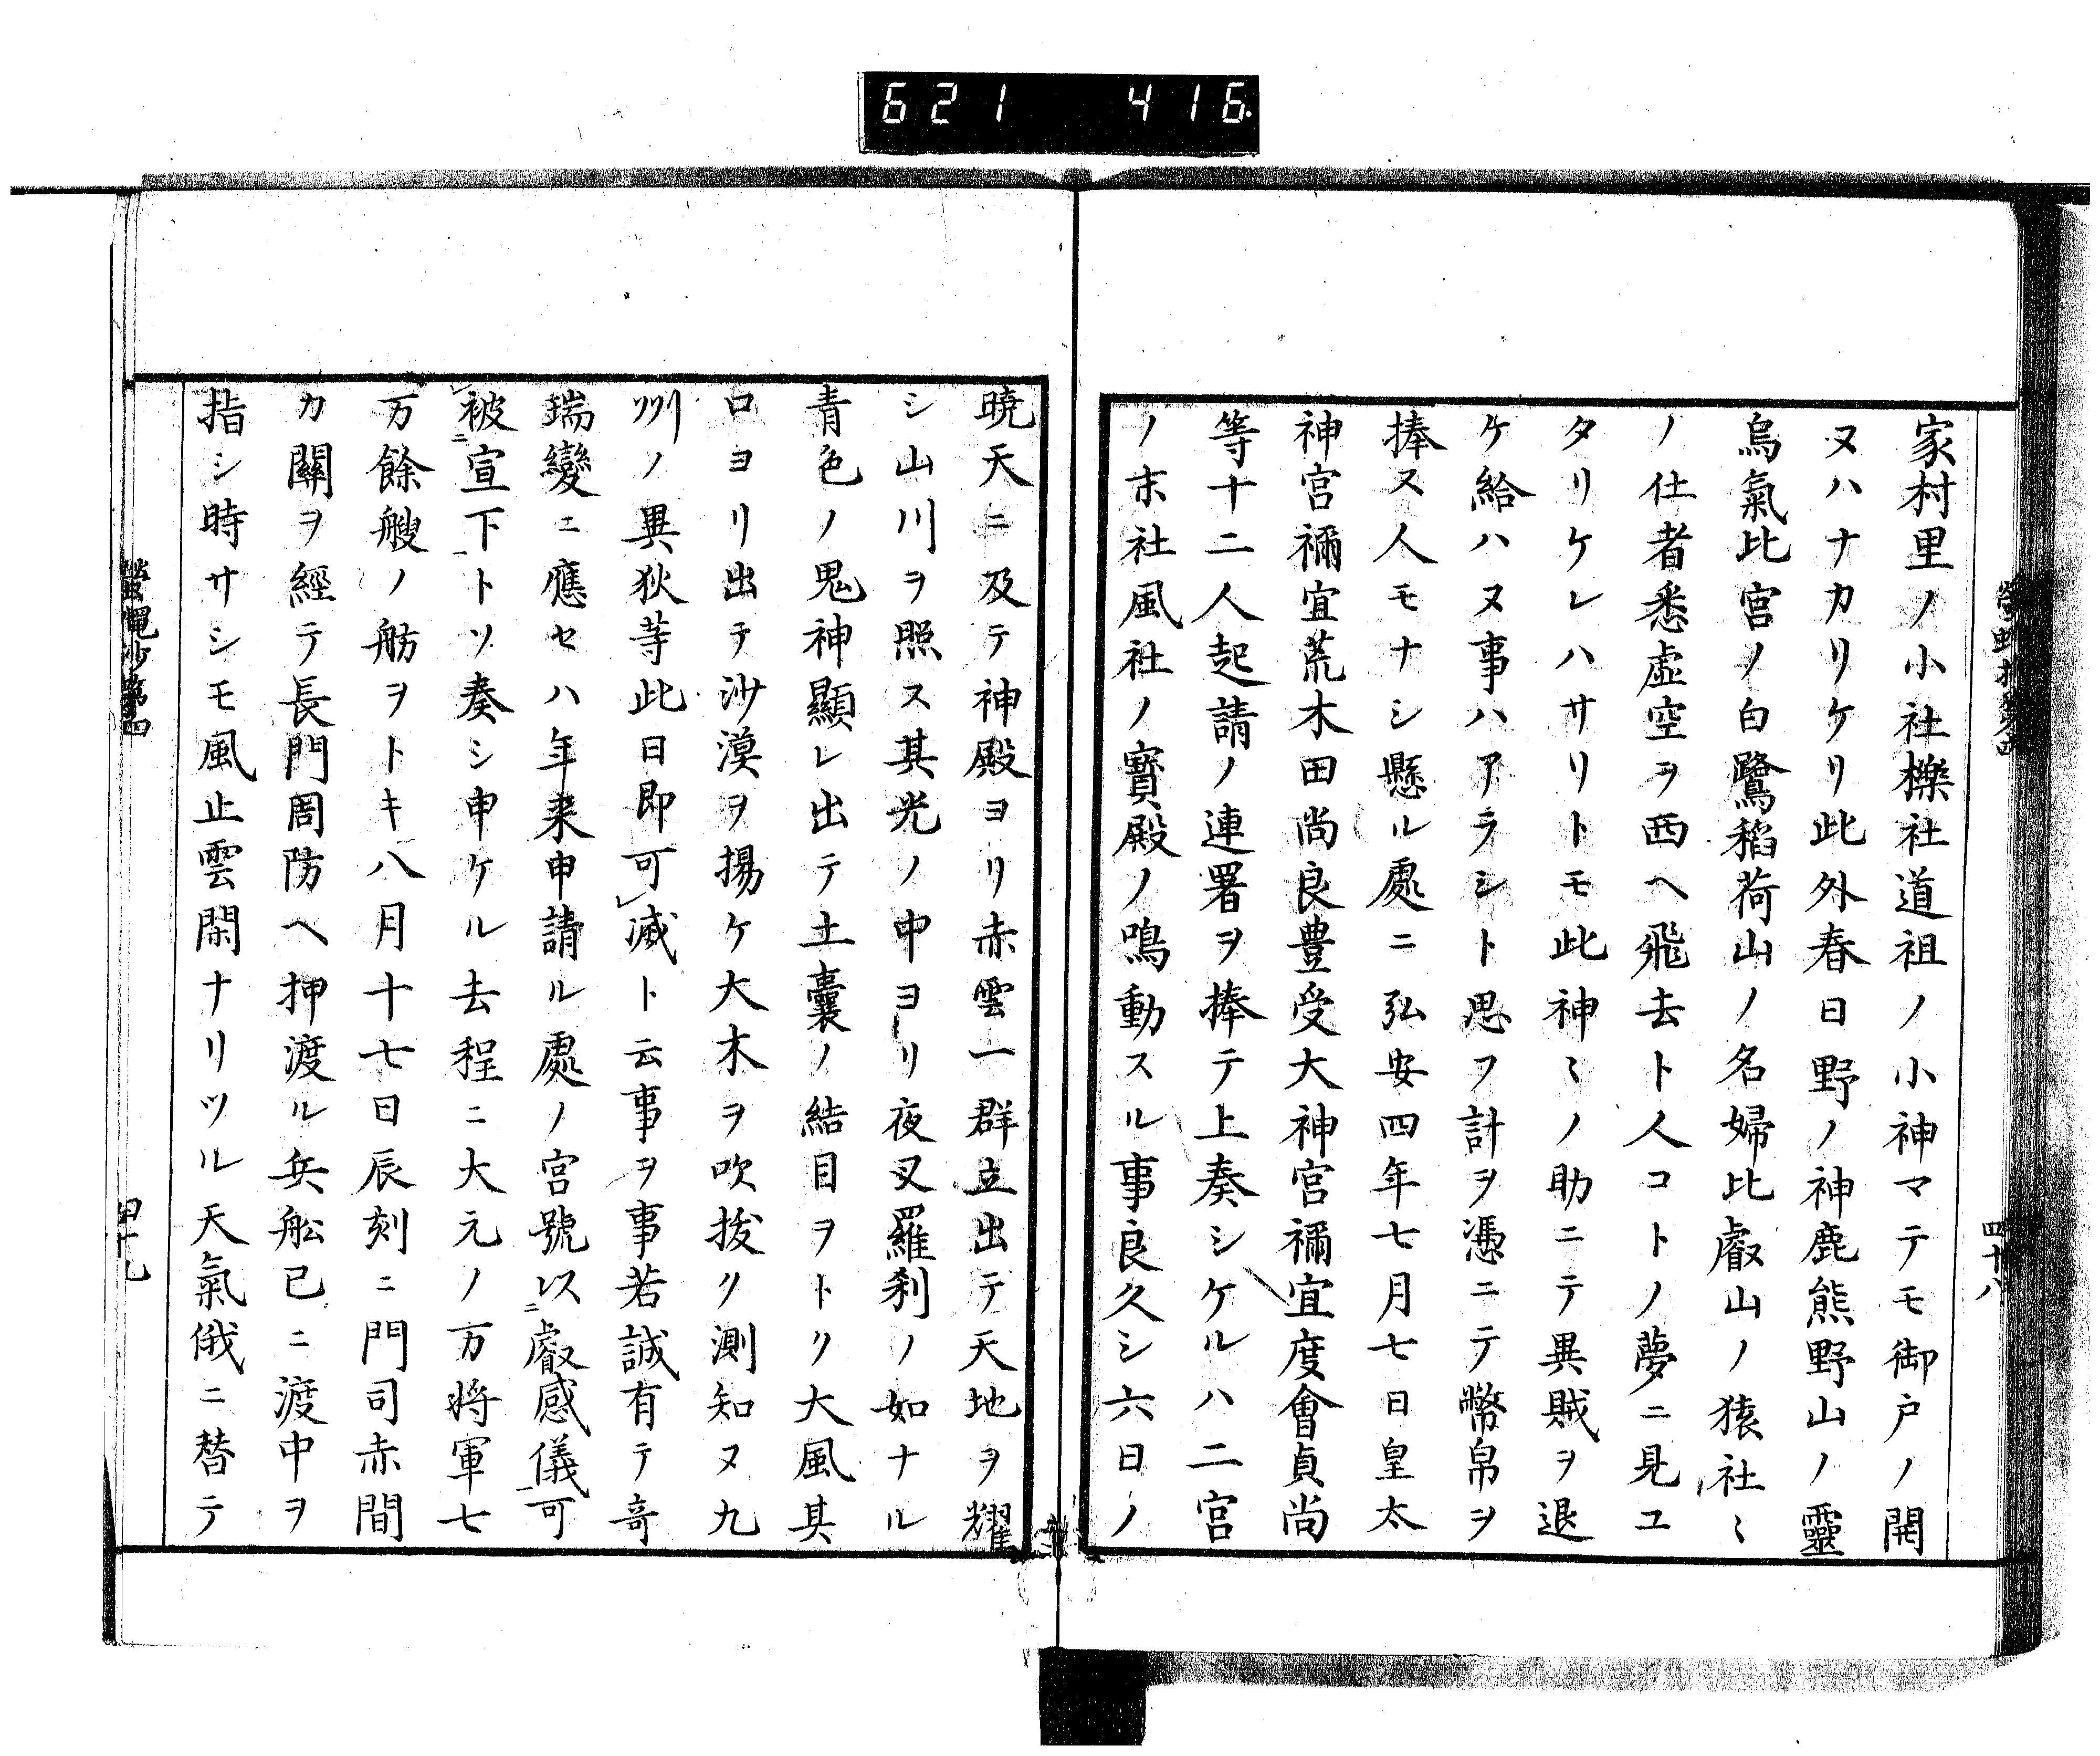 621 416
家村里ノ小社櫟社道祖ノ小神マテモ御戸ノ開
ヌハナカリケリ此外春日野ノ神鹿熊野山ノ靈
烏氣比宮ノ白鷺稻荷山ノ名婦比叡山ノ猿社〻
ノ仕者悉虛空ヲ西ヘ飛去ト人コトノ夢ニ見ユ
タリケレハサリトモ此神〻ノ助ニテ異賊ヲ退
ケ給ハヌ事ハアラシト思フ計ヲ憑ニテ幣帛ヲ
捧ヌ人モナシ懸ル處ニ弘安四年七月七日皇太
神宮禰宜荒木田尚良豊受大神宮禰宜度會貞尚
等十二人起請ノ連署ヲ捧テ上奏シケルハ二宮
ノ末社風社ノ寳殿ノ鳴動スル事良久シ六日ノ
四十八
曉天ニ及テ神殿ヨリ赤雲一群立出テ天地ヲ耀
シ山川ヲ照ス其光ノ中ヨリ夜叉羅刹ノ如ナル
青色ノ鬼神顯レ出テ土囊ノ結目ヲトク大風其
口ヨリ出テ沙漠ヲ揚ケ大木ヲ吹拔ク測知ヌ九
州ノ異狄等此日即可レ滅ト云事ヲ事若誠有テ奇
瑞變ニ應セハ年来申請ル處ノ宮號以二叡感儀一可
レ被二宣下一トソ奏シ申ケル去程ニ大元ノ万将軍七
万餘艘ノ舫ヲトキ八月十七日辰刻ニ門司赤間
カ關ヲ經テ長門周防ヘ押渡ル兵舩已ニ渡中ヲ
指シ時サシモ風止雲閑ナリツル天氣俄ニ替テ
蠻蠅抄第四
四十九